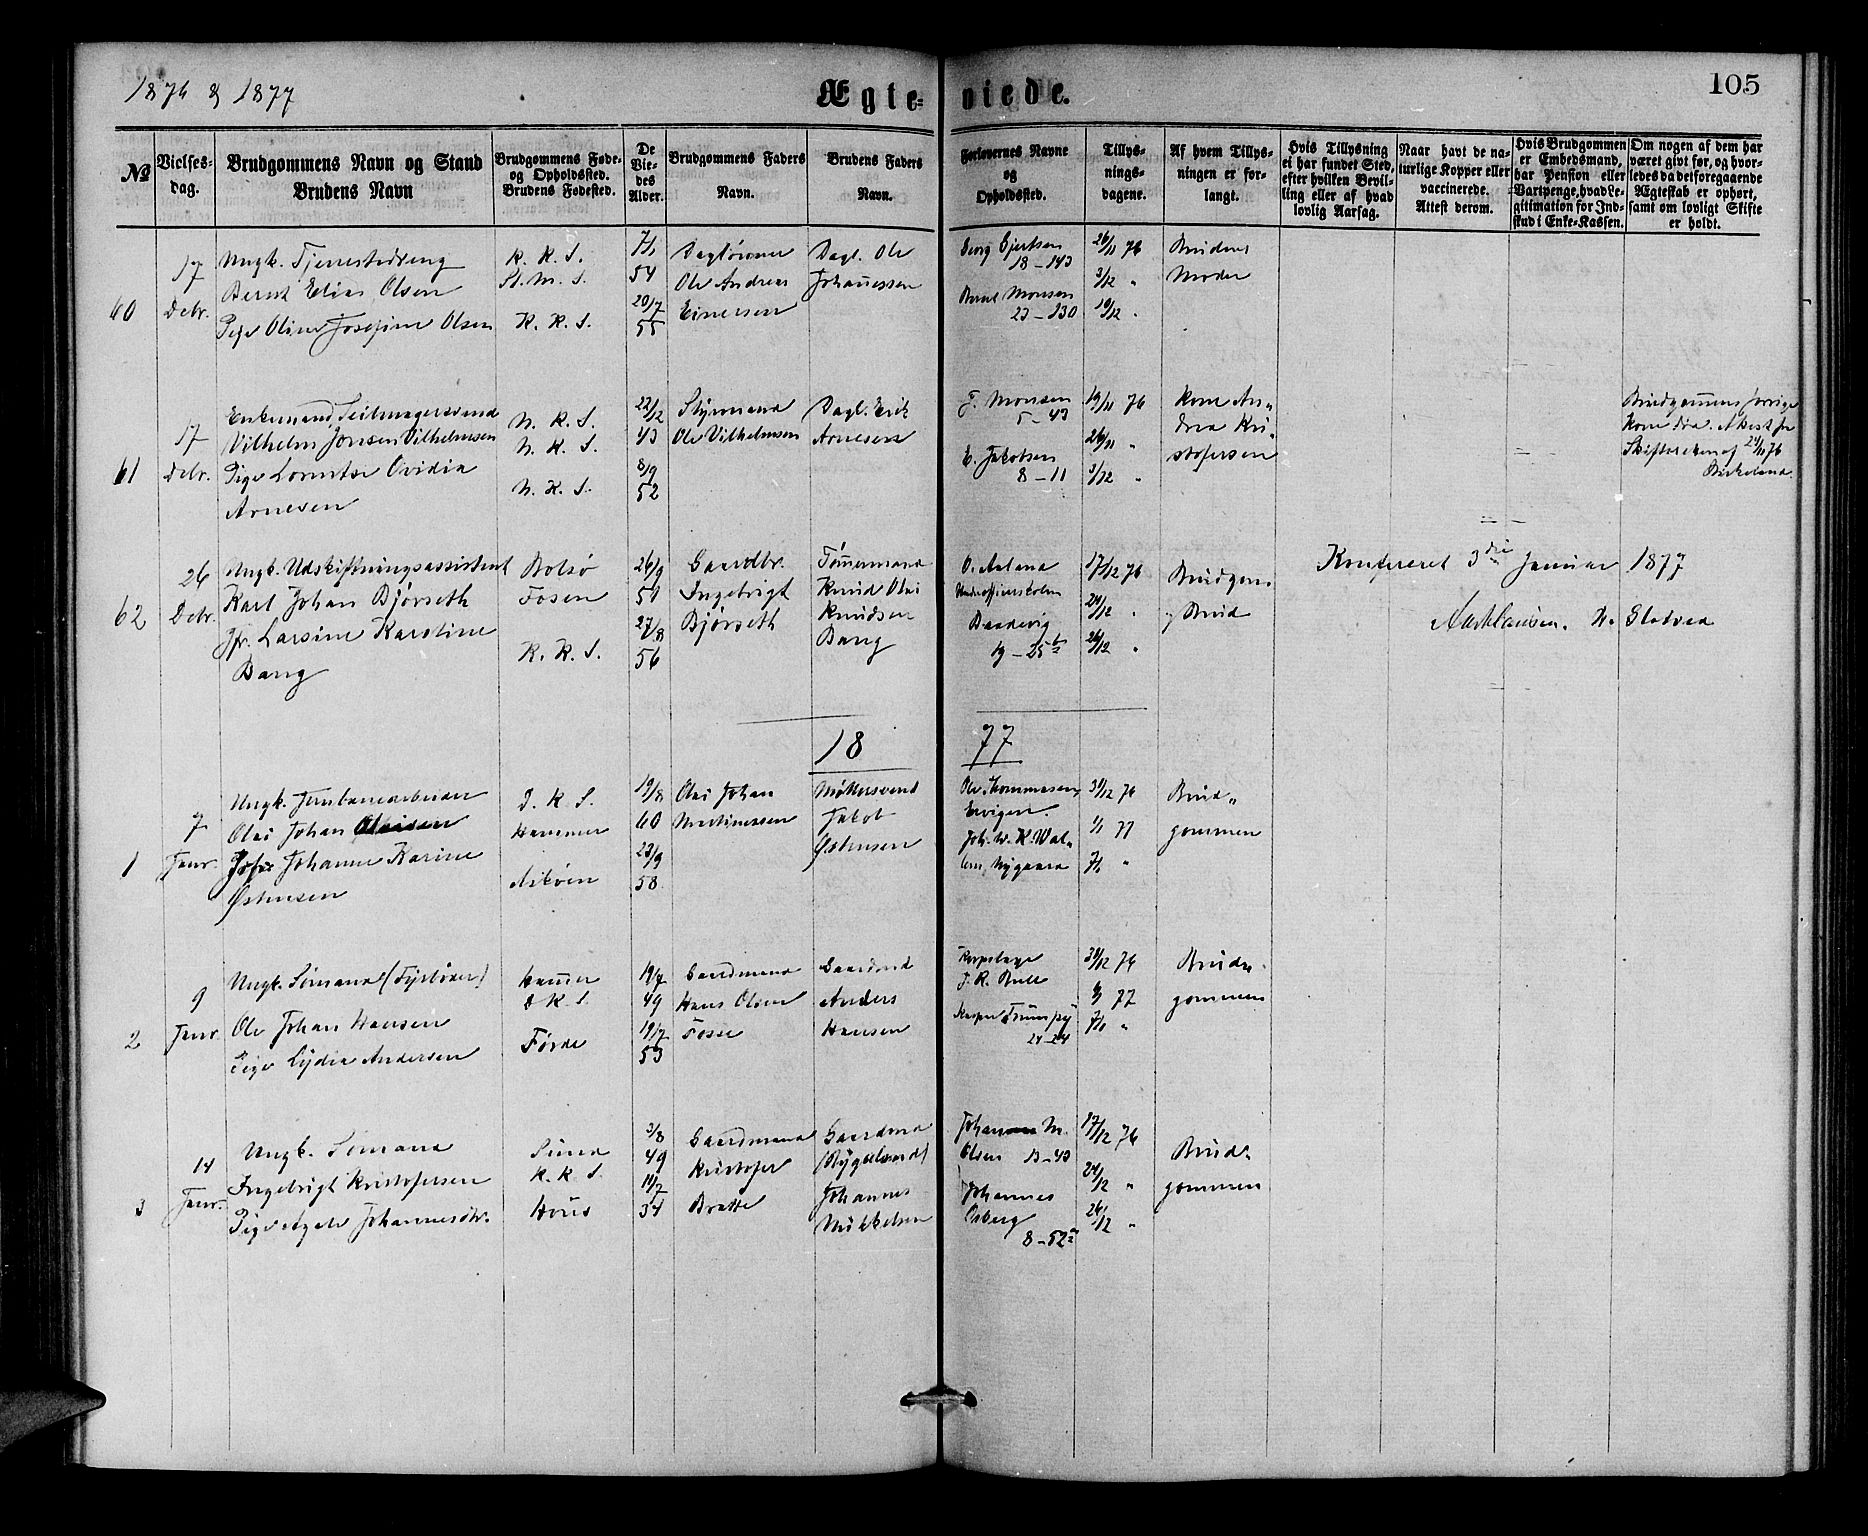 1876 & 1877
Ægte-viede.
105
№
Vielses-dag.
Brudgommens Navn og Stand
Brudens Navn
Brudgommens Føde- og Opholdssted.
Brudens Fødested.
De Viedes Alder.
Brudgommens Faders Navn.
Brudens Faders Navn.
Forlovernes Navne og Opholdssted.
Tillysningsdagene.
Af hvem Tillysningen er forlangt.
Hvis Tillysning ei har fundet Sted, efter hvilken Bevilling eller af hvad lovlig Aarsag.
Naar havt de naturlige Kopper eller vaccinerede. Attest derom.
Hvis Brudgommen er Embedsmand, har Pension eller Vartpenge, hvad Legitimation for Indskud i Enke-Kassen.
Om nogen af dem har været gift før, og hvorledes da det foregaaende Ægteskab er ophørt, samt om lovligt Skifte er holdt.
60
17 Debr.
Ungk. Tjenestedreng
Bernt Elias Olsen
Pige Oline Josefine Olsen
K. K. S.
St. M. S.
K. K. S.
7/1 54
20/7 55
Dagleiener
Ole Andreas
Einersen
Dagl. Ole
Johanessen
Georg Gjertsen
18-143
Bernt Monsen
23-130
26/11 76
3/12 "
10/12 "
Brudens
Moder
61
17 Debr.
Enkemand, Seilmagersvend
Vilhelm Jonsen Vilhelmsen
Pige Lorentse Ovidia
Arnesen
N. K. S.
N. K. S.
N. K. S.
22/12 43
8/9 52
Styrmand
Ole Vilhelmsen
Dagl. Erik
Arnesen
F. Monsen
5-43
E. Jakobsen
8-11
19/11 76
26/11 "
3/12 "
Kone An-
drea Kri-
stofersen
Brudgommens forrige
Kone død. Attest fra
Skifteretten af 24/11 76
Birkeland.
62
26 Debr.
Ungk. Udskiftningsassistent
Karl Johan Bjørseth
Jfr. Larsine Karoline
Bang
Bolsø
Fosen
K. K. S.
26/9 51
27/8 56
Gaardbr.
Ingebrigt
Bjørseth
Tømermand
Knud Olai
Knudsen
Bang
O. Aaland
Underofficerskolen
Baadevig
19-25b
17/12 76
24/12 "
26/12 "
Brudgom
og Brud
Konfereret 3die Januar 1877
18 77
1
7 Janr.
Ungk. Jernbanearbeider
Olai Johan
Johanne Karine
Østensen
D. K. S.
Hammer
Askøen
19/8 60
23/9 58
Olai Johan
Martinussen
Møllersvend
Jakob
Østensen
Ole Thommasen,
Joh. W. K. Wal-
lem, Nygaard
31/12 76
1/1 77
7/1 "
Brud-
gommen
2
9 Janr.
Ungk. Sømand (Fyrbøder)
Ole Johan Hansen
Pige Lydia Andersen
Hammer
D K S.
Førde
19/7 49
19/7 53
Gaardmand
Hans Olsen
Fosse
Gaardmd
Anders
Hansen
J. R. Bull
Kasper Trumpy
24-24
31/12 76
1/1 77
7/1 "
Brud-
gommen
3
14 Janr.
Ungk. Sømand
Ingebrigt Kristofersen
Pige Agate Johannesdtr.
Sund
K. K. S.
Hous
3/8 49
10/7 54
Gaardmand
Kristofer
Bratte
Gaardmd
Johannes
Mikkelsen
Johan M.
Olsen 13-43
Johannes
Osberg
8-52a
17/12 76
24/12 "
26/12 "
Brud-
gommen